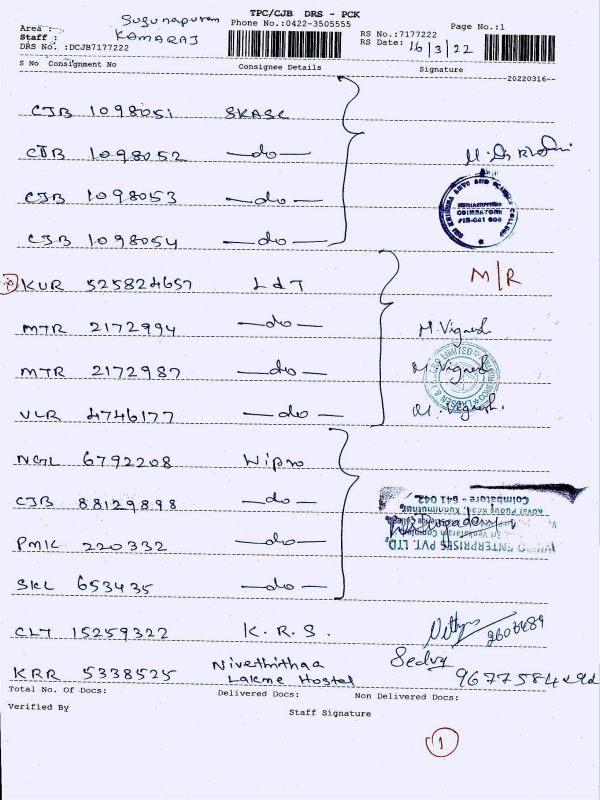 TPC/CJB DRS - PCK
Area : Sugunapuram
Phone No.:0422-3505555
Page No.:1
Staff : KAMARAJ
RS No.:7177222
DRS No. :DCJB7177222
RS Date: 16/3/22
S No Consignment No Consignee Details Signature
20220316
CJB 1098051 SKASC
CJB 1098052 —do—
CJB 1098053 —do—
CJB 1098054 —do—
SRI KRISHNA ARTS AND SCIENCE COLLEGE
KUNIAMUTHUR
COIMBATORE
PIN-641 008
KUR 525824657 L&T M/R
MTR 2172994 —do— M. Vignesh
MTR 2172987 —do— M. Vignesh
VLR 4746177 —do— M. Vignesh.
NGL 6792208 Wipro
CJB 88129898 —do—
PMK 220332 —do—
SKL 653435 —do—
ENTERPRISES PVT. LTD.
Coimbatore - 641 042.
CLT 15259322 K.R.S.
KRR 5338525 Nivethithaa
Lakme Hostel
Total No. Of Docs: Delivered Docs: Non Delivered Docs:
Verified By
Staff Signature
1